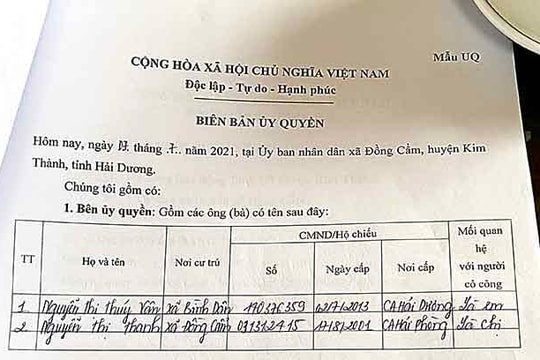 Mẫu UQ
CỘNG HÒA XÃ HỘI CHỦ NGHĨA VIỆT NAM
Độc lập - Tự do - Hạnh phúc
BIÊN BẢN ỦY QUYỀN
Hôm nay, ngày tháng 7. năm 2021, tại Ủy ban nhân dân xã Đồng Cẩm, huyện Kim
Thành, tỉnh Hải Dương.
Chúng tôi gồm có:
1. Bên ủy quyền: Gồm các ông (bà) có tên sau đây:
TT Họ và tên Nơi cư trú CMND/Hộ chiếu Mối quan hệ với người có công
Số Ngày cấp Nơi cấp
1 Nguyễn thị thuý Vân xã Bình Dân CA Hải Dương Là em
2 Nguyễn thị thanh xã Đồng Cẩm CA Hải Phòng Là chị